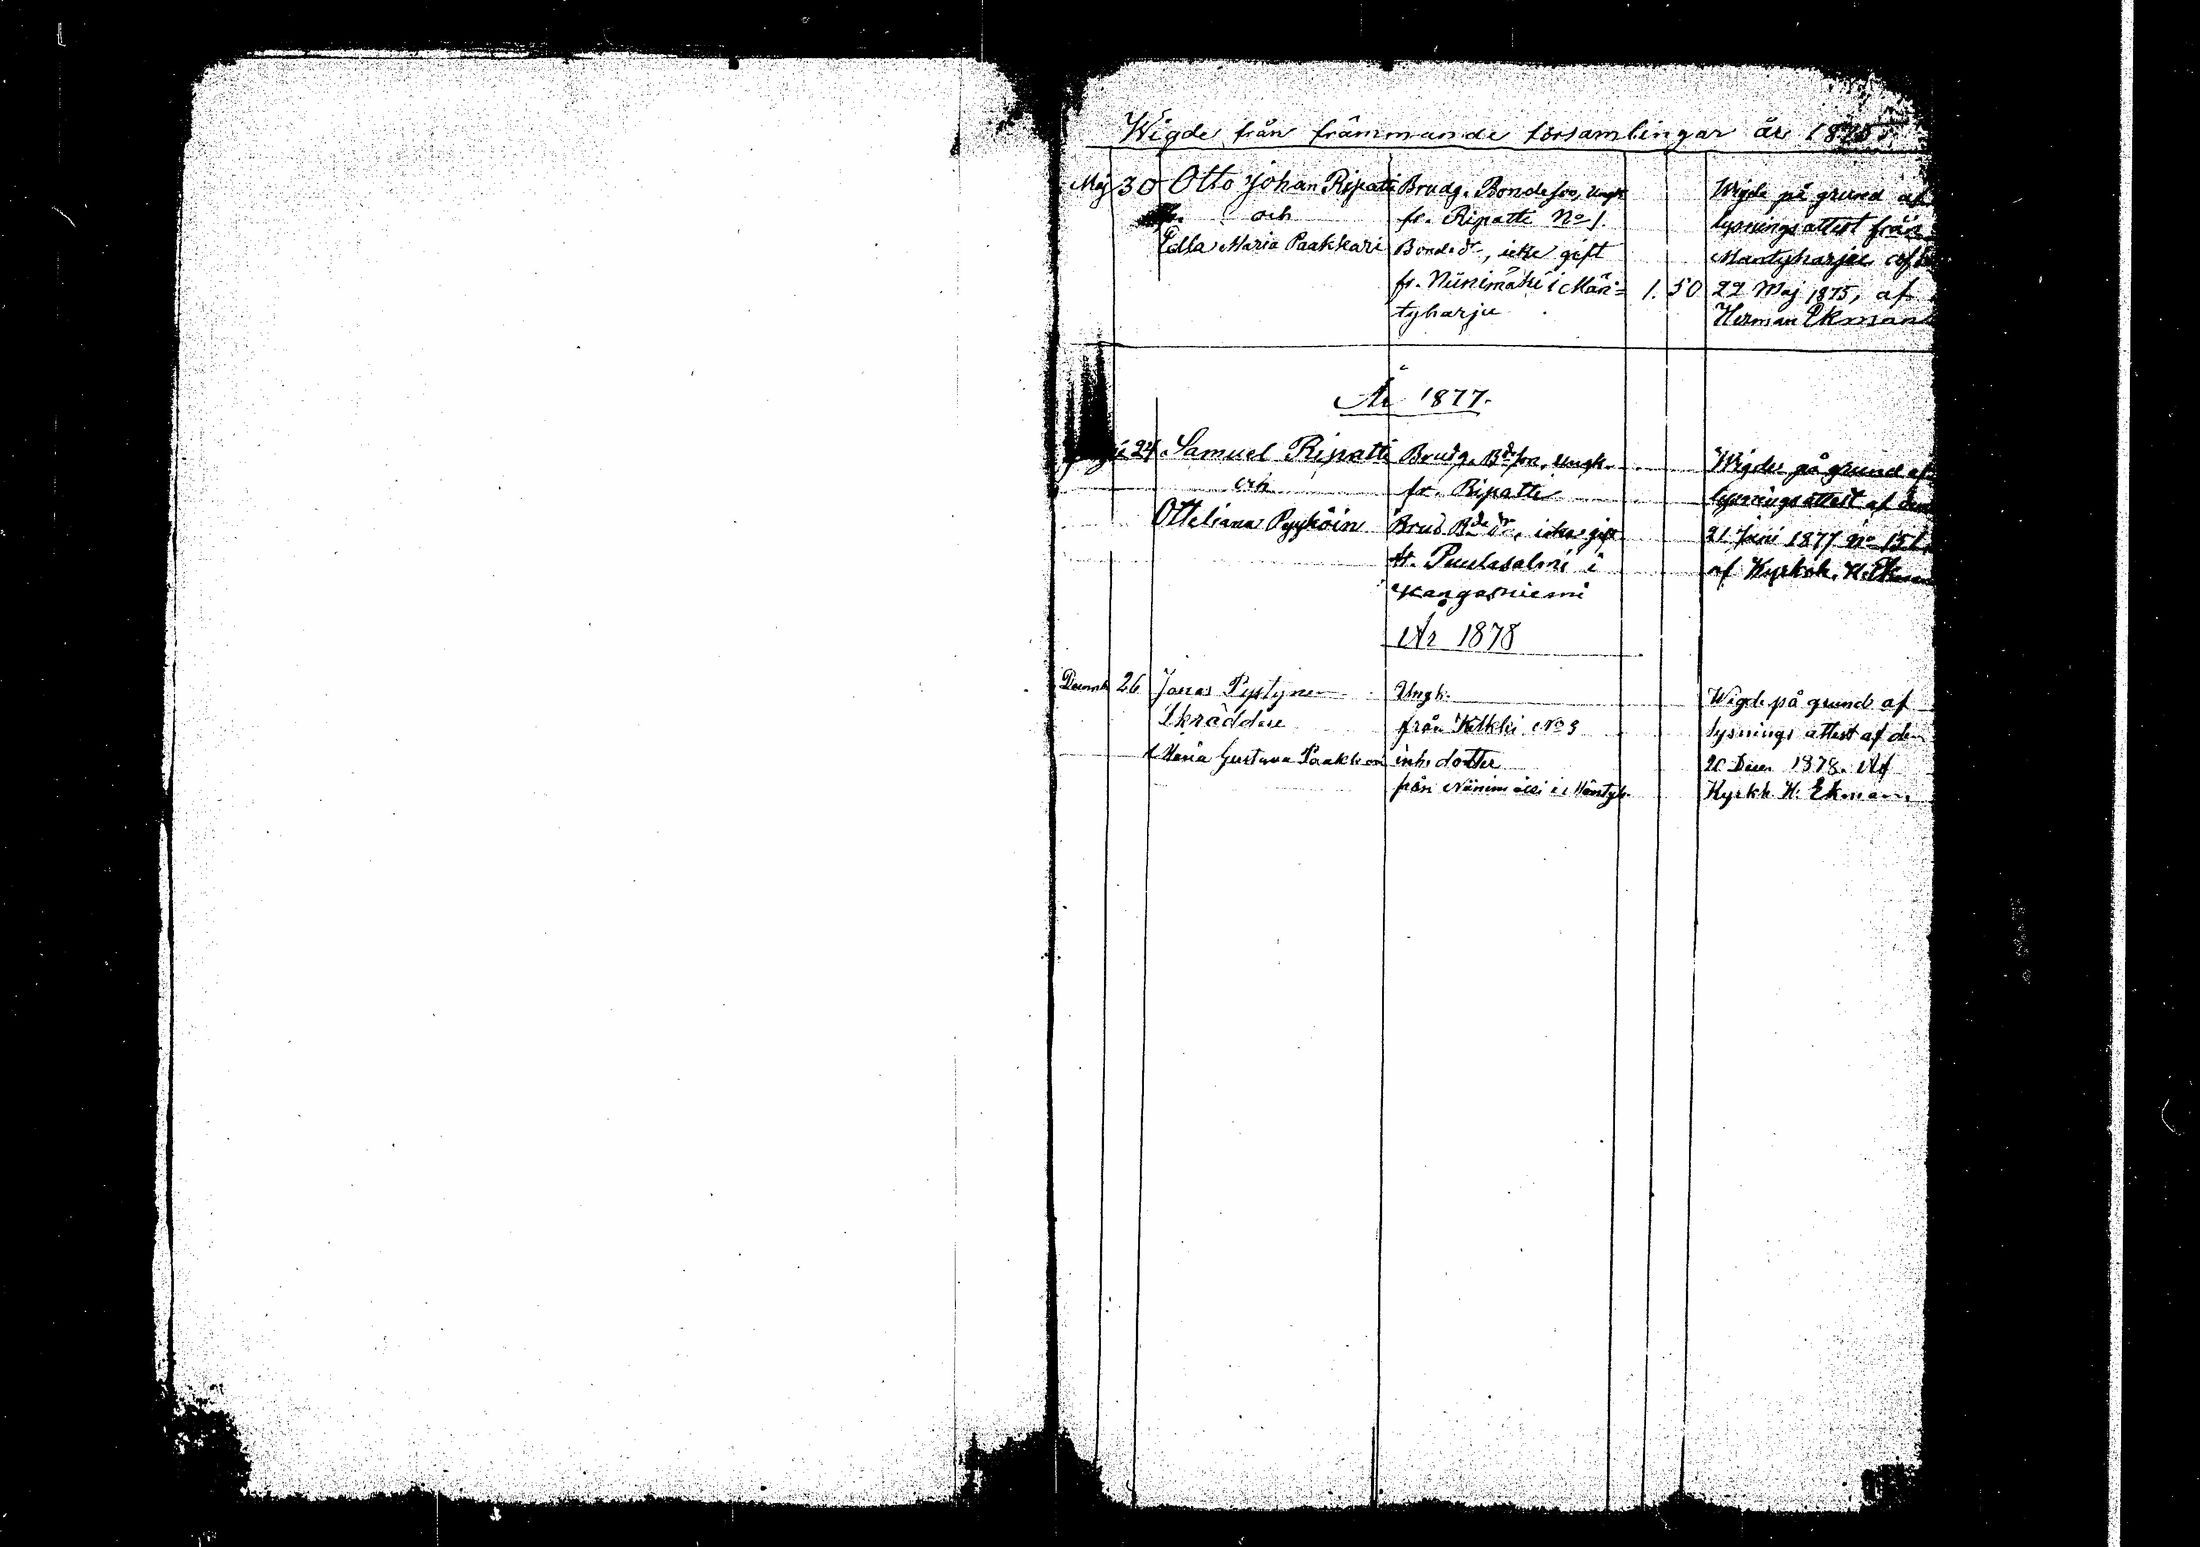 Wigde från främmande församlingar år 1875.
Maj 30 Otto Johan Ripatti Brudg. Bondeson, Ungk. Wigde på grund af
och fr. Ripatti No 1. lysningsattest från
Edla Maria Paakkari Bonded:r, icke gift Mäntyharju af
fr. Niinimäki i Män= 1. 50 22 Maj 1875, af
tyharju Herman Ekman
År 1877.
24 Samuel Ripatti Brudg. Bdeson, Ungk. Wigde på grund af
och fr. Ripatti lysningsattest af den
Otteliana Pyyköin Brud Bde dr, icke gift 21 Juni 1877 No 151
fr. Puulasalmi i af Kyrkoh. H. Ekman
Kangasniemi
År 1878
Decemb. 26 Jonas Pystynen Ungk. Wigde på grund af
Skräddare från No 3 lysnings attest af den
& Maria Gustava Paakkari inhs dotter 20 Decem 1878. Af
från Niinimäki i Mäntyh. Kyrkh. H. Ekman.